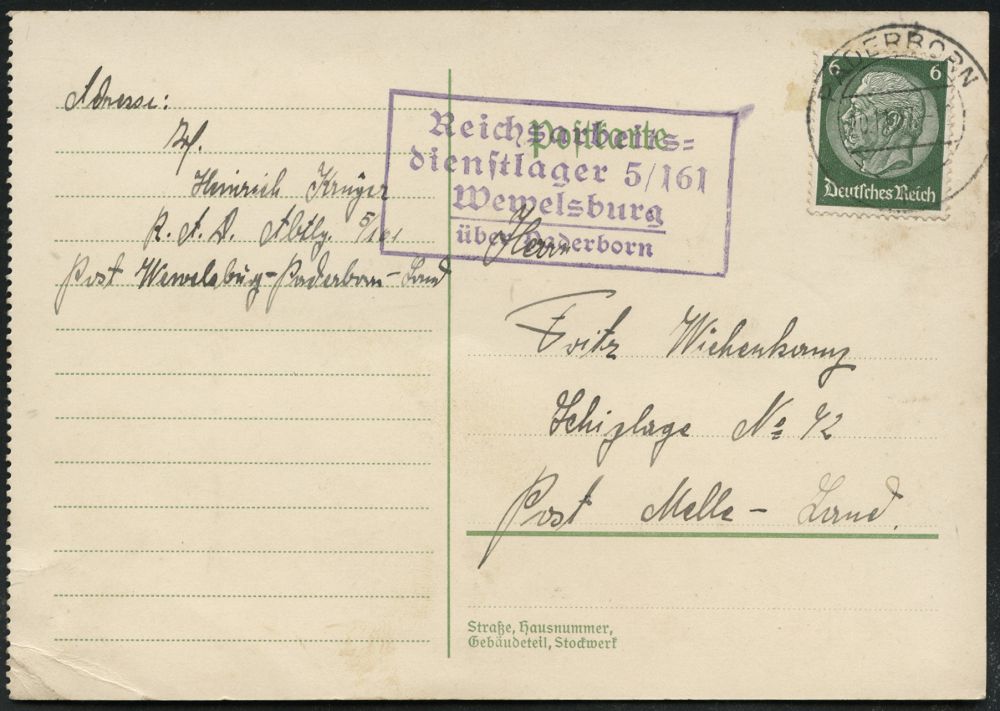 Adresse:
Heinrich Krüger
R. A. D. Abtlg. 5/161
Post Wewelsburg-Paderborn-Land
Postkarte
Reichsarbeits=
dienstlager 5/161
Wewelsburg
über Paderborn
PADERBORN
6 6
Deutsches Reich
Herrn
Fritz
No 42
Post Melle - Land.
Straße, Hausnummer,
Gebäudeteil, Stockwerk